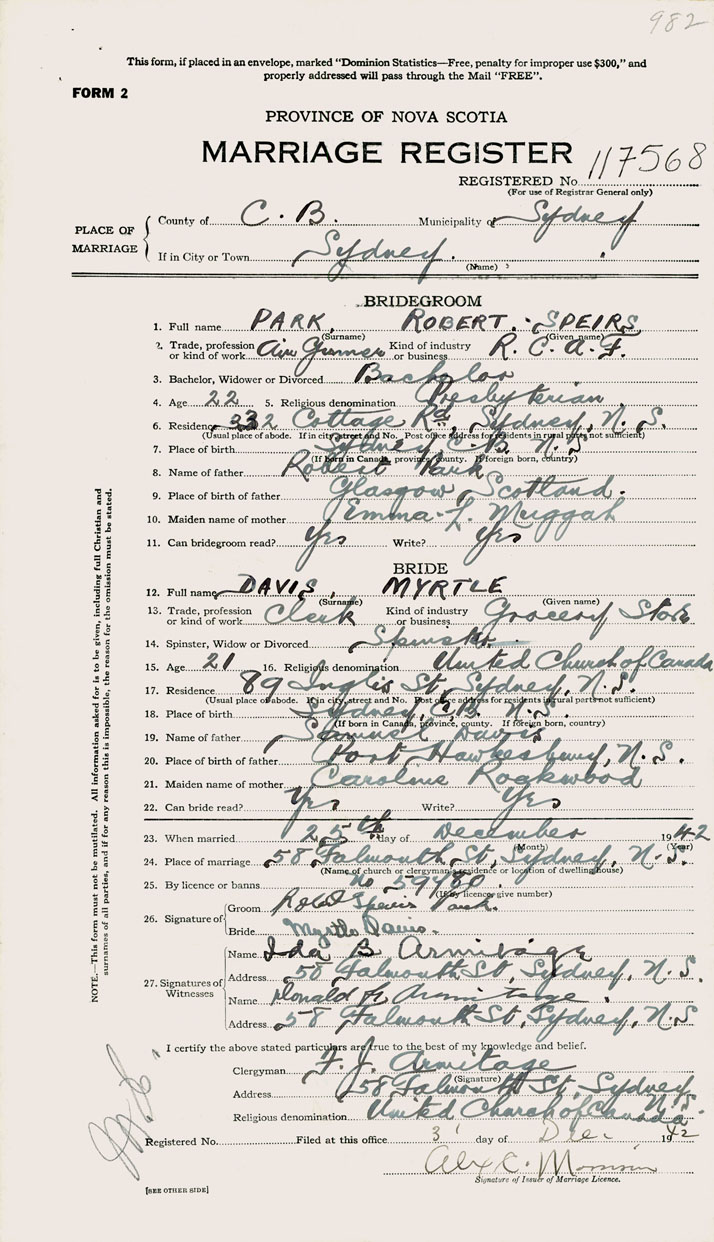 982
This form, if placed in an envelope, marked "Dominion Statistics—Free, penalty for improper use $300," and
properly addressed will pass through the Mail "FREE".
FORM 2
PROVINCE OF NOVA SCOTIA
MARRIAGE REGISTER
REGISTERED No. 117568
(For use of Registrar General only)
PLACE OF MARRIAGE
County of C. B. Municipality of Sydney
If in City or Town Sydney.
(Name)
BRIDEGROOM
1. Full name PARK, ROBERT. SPEIRS
(Surname) (Given name)
2. Trade, profession or kind of work Air Gunner Kind of industry or business R. C. A. F.
3. Bachelor, Widower or Divorced Bachelor
4. Age 22 5. Religious denomination Presbyterian
6. Residence 232 Cottage Rd, Sydney, N. S.
(Usual place of abode. If in city, street and No. Post office address for residents in rural parts not sufficient)
7. Place of birth Sydney C. B. N. S.
(If born in Canada, province, county. If foreign born, country)
8. Name of father Robert Park
9. Place of birth of father Glasgow, Scotland.
10. Maiden name of mother Emma L. Muggah
11. Can bridegroom read? Yes Write? Yes
BRIDE
12. Full name DAVIS, MYRTLE
(Surname) (Given name)
13. Trade, profession or kind of work Clerk Kind of industry or business Grocery Store
14. Spinster, Widow or Divorced Spinster
15. Age 21 16. Religious denomination United Church of Canada
17. Residence 89 Inglis St, Sydney, N. S.
(Usual place of abode. If in city, street and No. Post office address for residents in rural parts not sufficient)
18. Place of birth Sydney, C. B. N. S.
(If born in Canada, province, county. If foreign born, country)
19. Name of father Samuel Davis
20. Place of birth of father Port Hawkesbury, N. S.
21. Maiden name of mother Caroline Rockwood
22. Can bride read? Yes Write? Yes
23. When married 25th day of December 1942
(Month) (Year)
24. Place of marriage 58 Falmouth St, Sydney, N. S.
(Name of church or clergyman's residence or location of dwelling house)
25. By licence or banns No 59480.
(If by licence give number)
26. Signature of
Groom Robert Speirs Park.
Bride Myrtle Davis.
27. Signatures of Witnesses
Name Ida B Armitage
Address 58 Falmouth St, Sydney, N. S.
Name Donald Armitage
Address 58 Falmouth St, Sydney, N. S.
I certify the above stated particulars are true to the best of my knowledge and belief.
Clergyman F. J. Armitage
(Signature)
Address 58 Falmouth St, Sydney, N. S.
Religious denomination United Church of Canada
Registered No. Filed at this office 31 day of Dec 1942
Signature of Issuer of Marriage Licence.
[SEE OTHER SIDE]
NOTE.—This form must not be mutilated. All information asked for is to be given, including full Christian and
surnames of all parties, and if for any reason this is impossible, the reason for the omission must be stated.